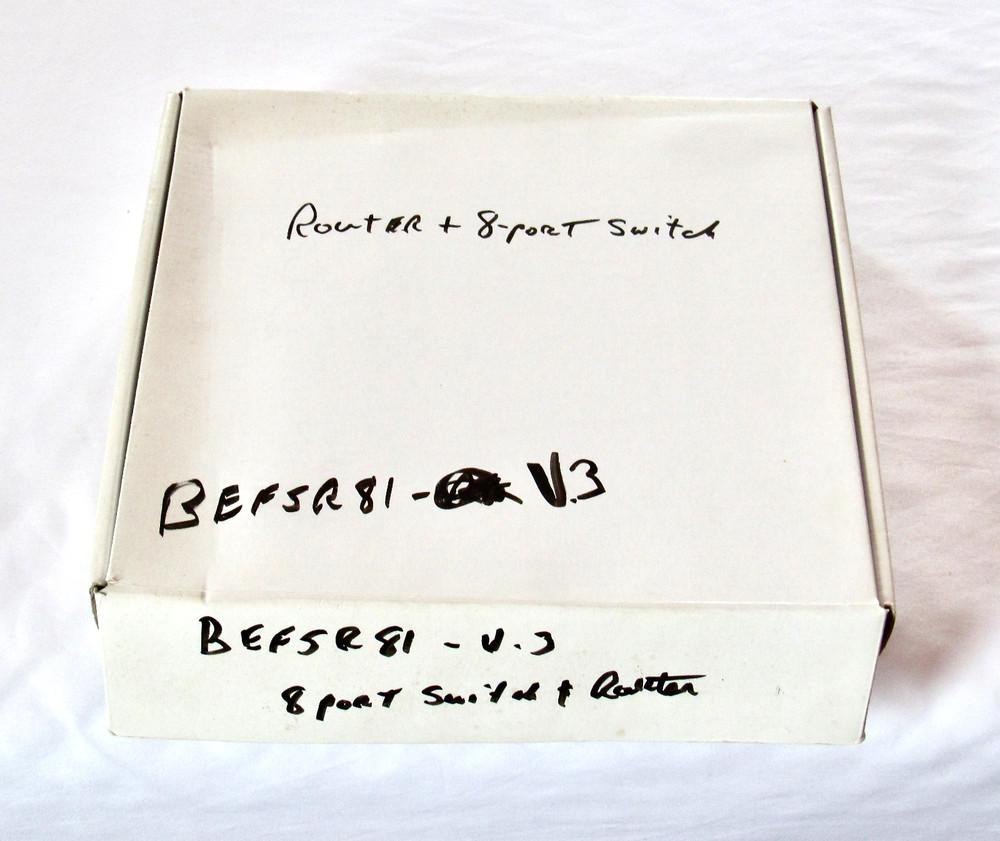 Router + 8-port Switch
BEFSR81 - V.3
BEFSR81 - V.3
8 port Switch + Router